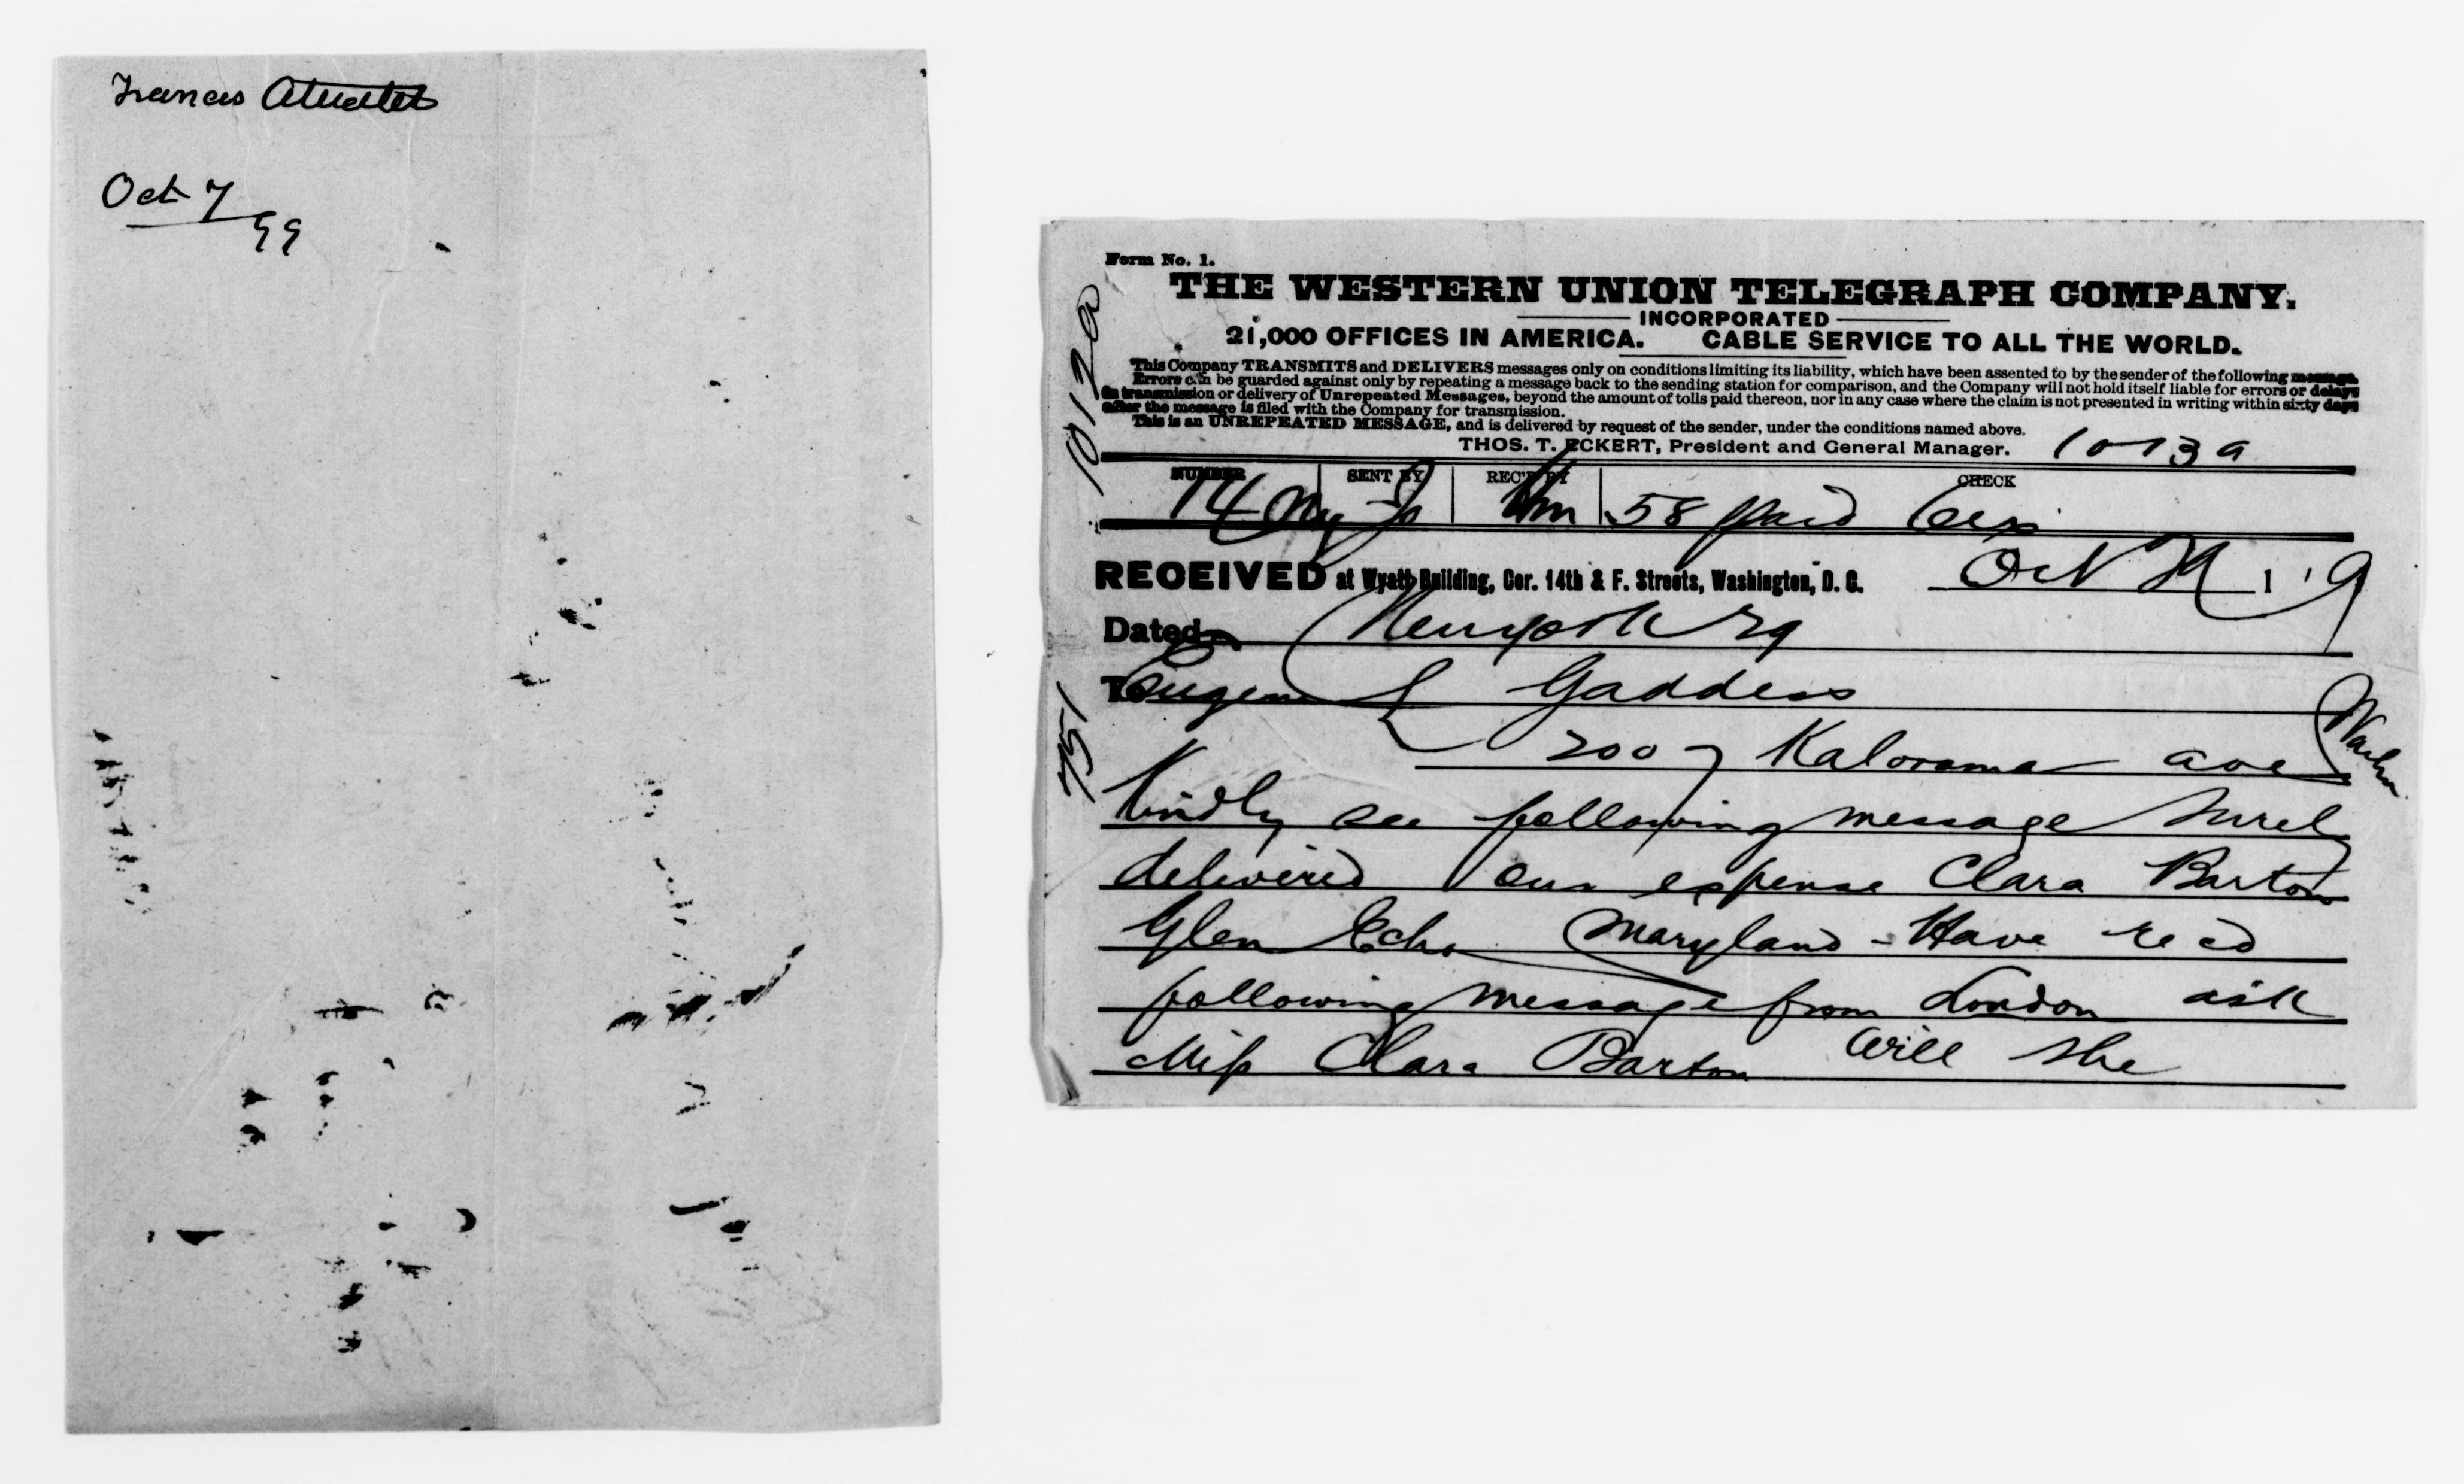 Francis Atwater
Oct 7
99
Form No. 1.
THE WESTERN UNION TELEGRAPH COMPANY.
INCORPORATED
21,000 OFFICES IN AMERICA. CABLE SERVICE TO ALL THE WORLD.
This Company TRANSMITS and DELIVERS messages only on conditions limiting its liability, which have been assented to by the sender of the following message.
Errors can be guarded against only by repeating a message back to the sending station for comparison, and the Company will not hold itself liable for errors or delays
in transmission or delivery of Unrepeated Messages, beyond the amount of tolls paid thereon, nor in any case where the claim is not presented in writing within sixty days
after the message is filed with the Company for transmission.
This is an UNREPEATED MESSAGE, and is delivered by request of the sender, under the conditions named above.
THOS. T. ECKERT, President and General Manager.
1013a
1012a
NUMBER SENT BY REC'D BY CHECK
14 Ny 58 paid
RECEIVED at Wyatt Building, Cor. 14th & F. Streets, Washington, D. C. Oct 1 9
Dated Newyork
To Eugene L Gaddess
2007 Kalorama ave Washn
751
Kindly see following message surely
delivered our expense Clara Barton
Glen Echo Maryland - Have recd
following message from London ask
Miss Clara Barton will she